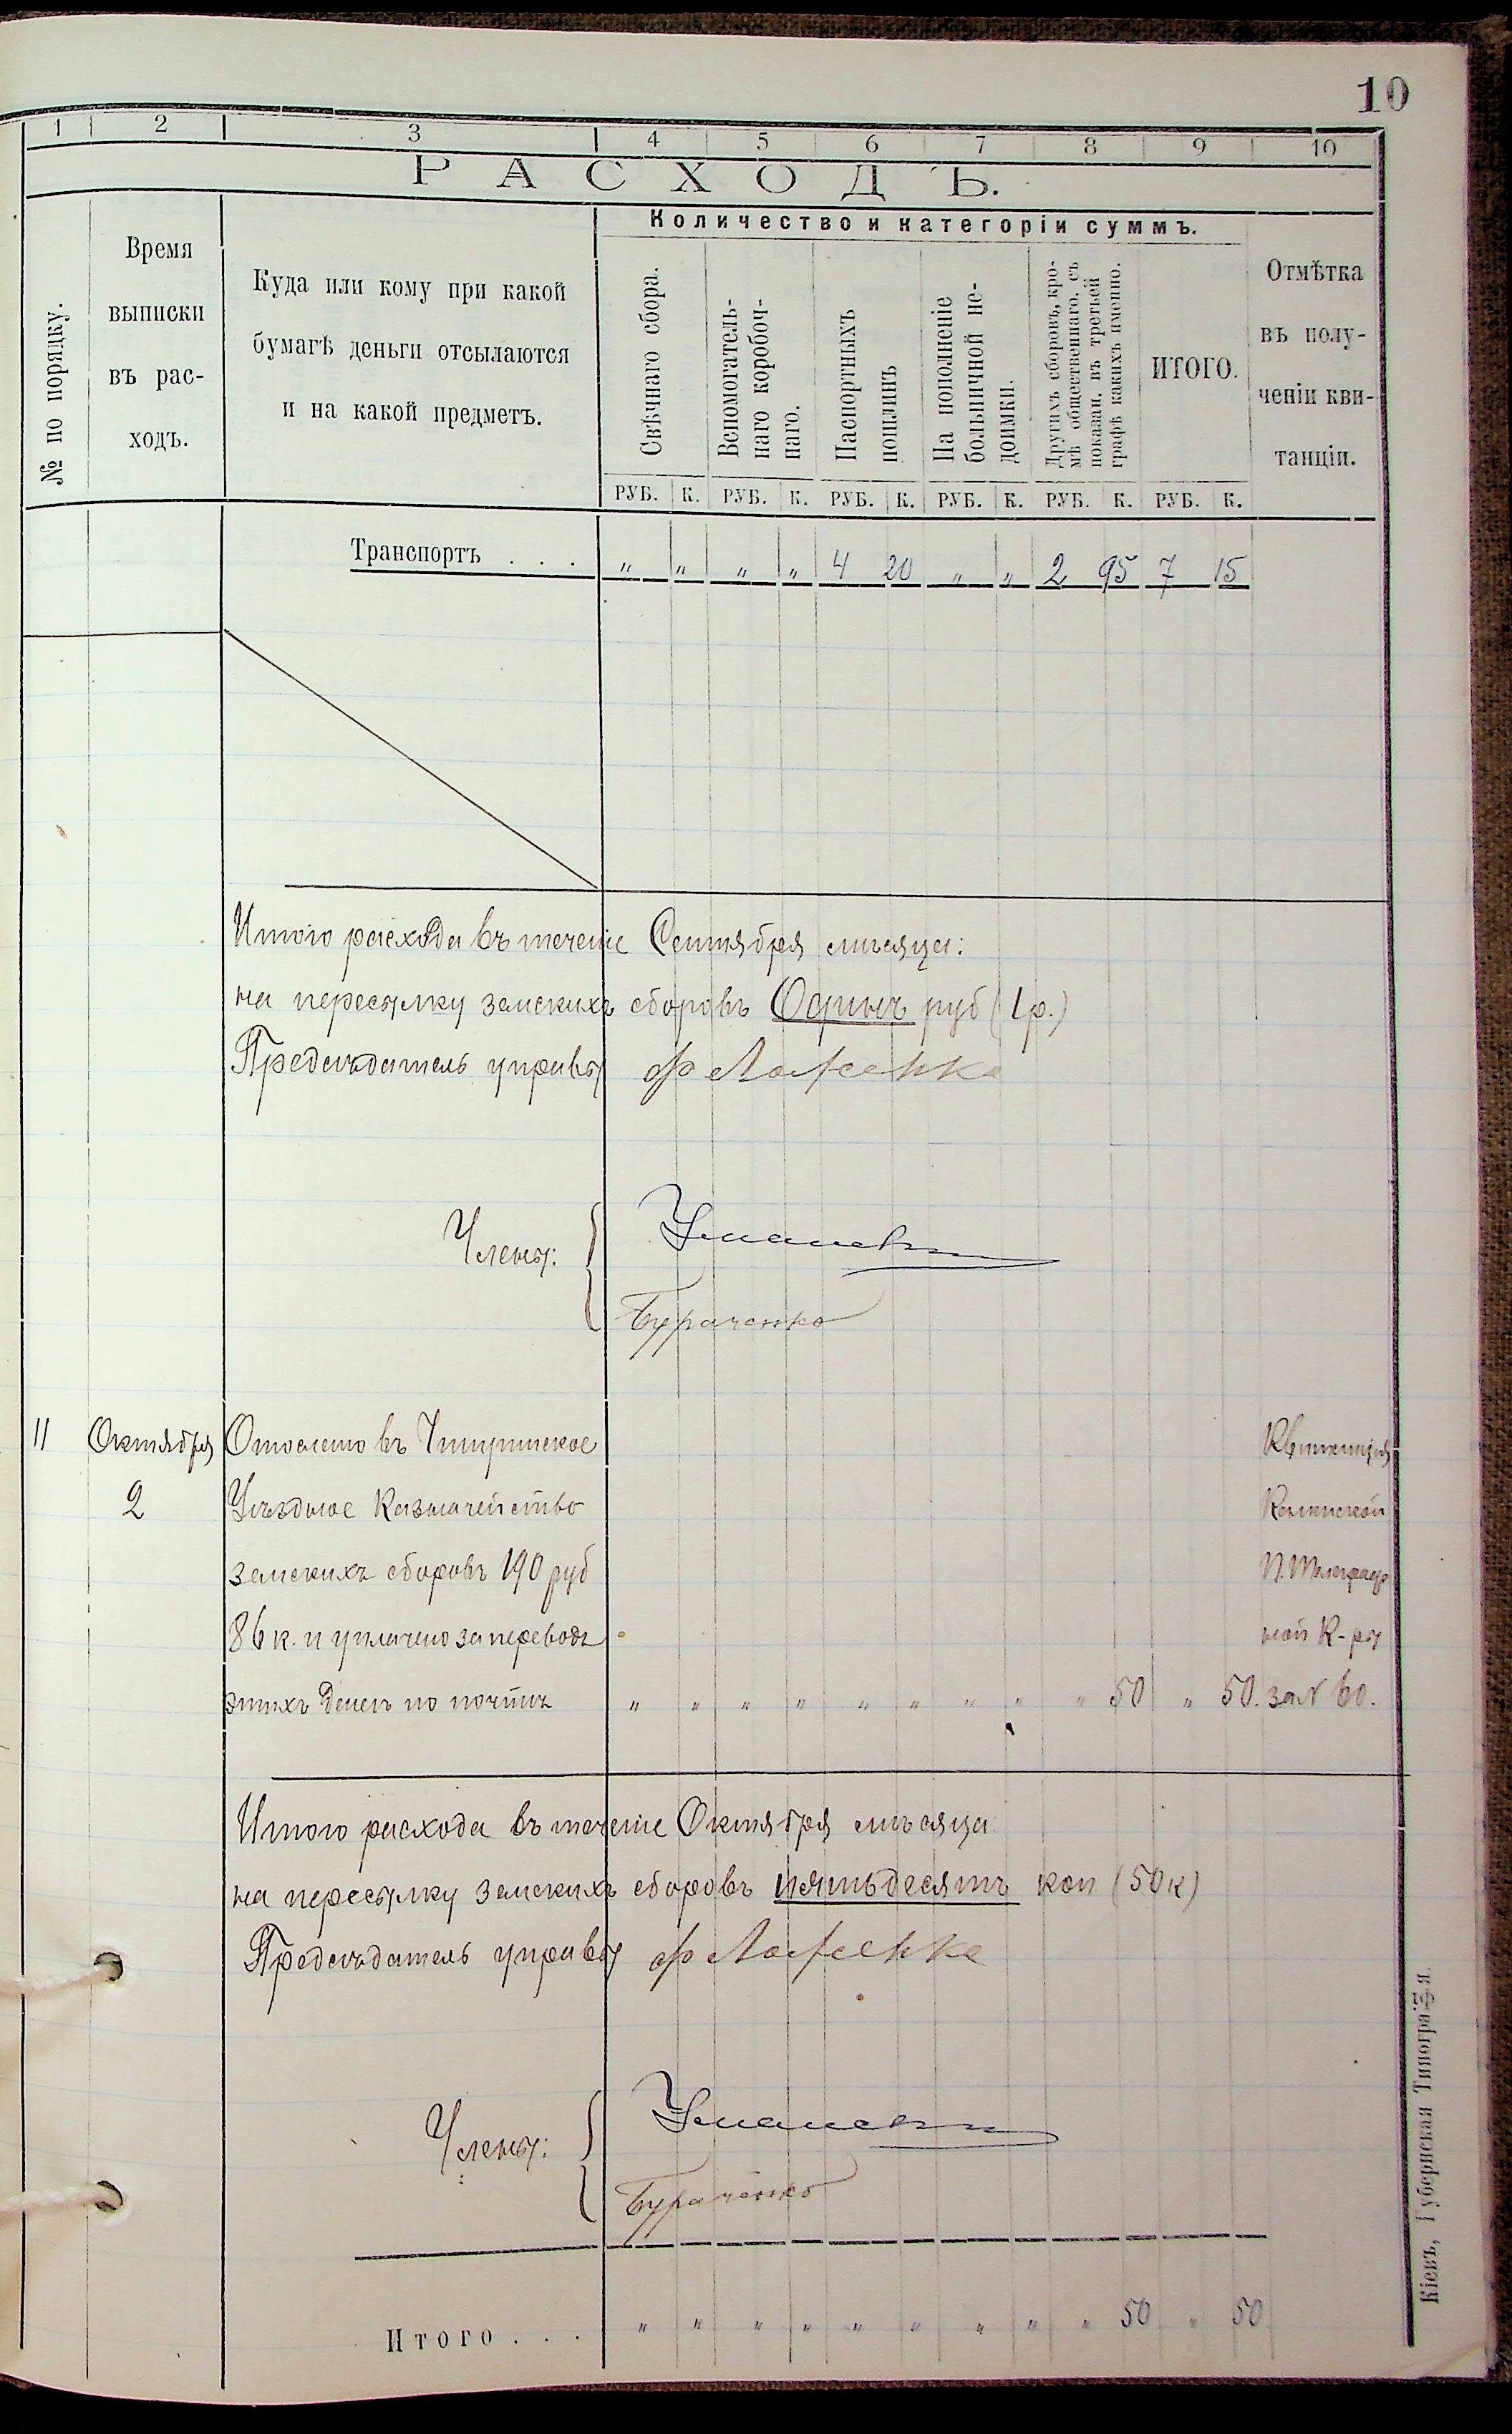 10
1 2 3 4 5 6 7 8 9 10
РАСХОДЪ.
№ по порядку.
Время
выписки
въ рас-
ходъ.
Куда или кому при какой
бумагѣ деньги отсылаются
и на какой предметъ.
Количество и категоріи суммъ.
Свѣчнаго сбора.
Вспомогатель-
наго коробоч-
наго.
Паспортныхъ
пошлинъ
На пополненіе
больничной не-
доимки.
Другихъ сборовъ, кро-
мѣ общественнаго, съ
показан. въ третьей
графѣ какихъ именно.
ИТОГО.
Отмѣтка
въ полу-
ченіи кви-
танціи.
РУБ. К. РУБ. К. РУБ. К. РУБ. К. РУБ. К. РУБ. К.
Транспортъ . . . " " " " 4 20 " " 2 95 7 15
Итого расхода въ теченіе Сентября мѣсяца:
на пересылку земскихъ сборовъ Одинъ руб (1 р.)
Предсѣдатель управы
Члены:
Бураченко
11 Октября Отослано въ Чигиринское Квитанція
2 Уѣздное Казначейство Каменской
земскихъ сборовъ 190 руб П. Телеграф
86 к. и уплачено за переводъ ной К-ры
этихъ денегъ по почтѣ " " " " " " " " " 50 " 50. за № 60.
Итого расхода въ теченіе Октября мѣсяца
на пересылку земскихъ сборовъ пятьдесятъ коп (50 к)
Предсѣдатель управы
Члены:
Бураченко
Итого . . . " " " " " " " " " 50 " 50
Кіевъ, Губернская Типографія.